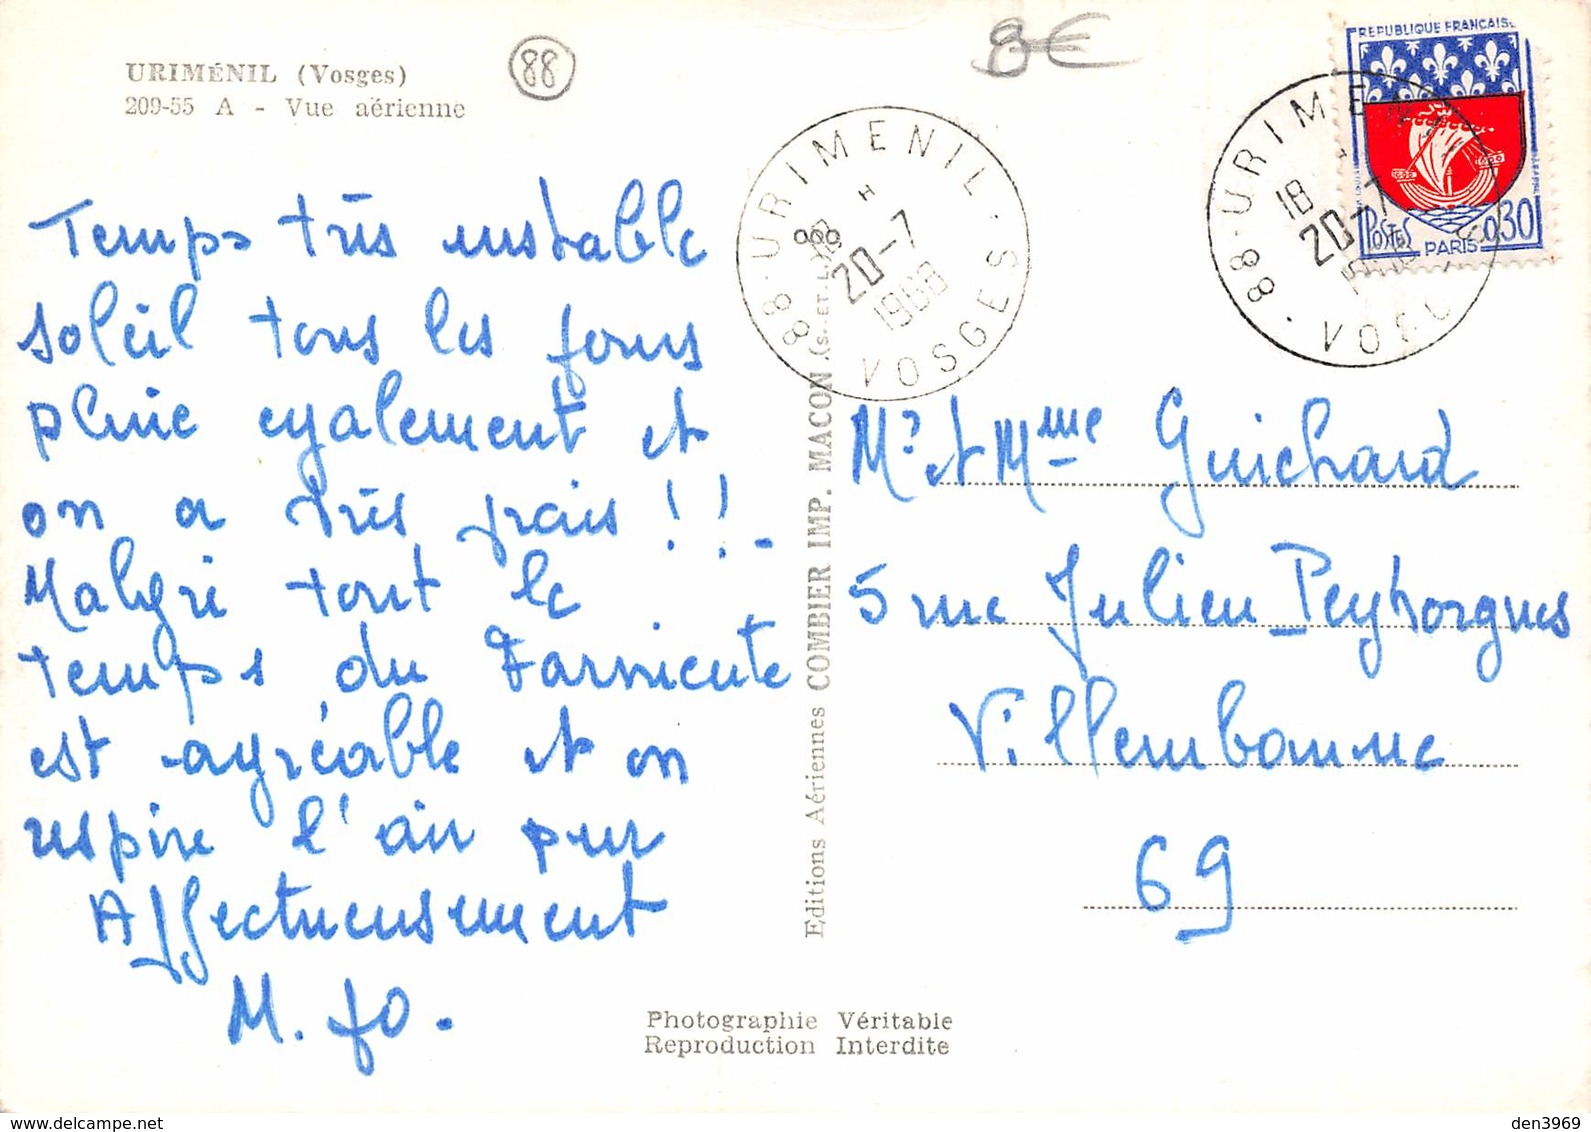 URIMÉNIL (Vosges)
209-55 A - Vue aérienne
88
8€
88 · URIMENIL · VOSGES
18 H
20-7
1968
88 · URIMENIL · VOSGES
18 H
20-7
REPUBLIQUE FRANÇAISE
POSTES
0,30
PARIS
Temps très instable
soleil tous les jours
pluie egalement et
on a très frais !!.
Malgré tout le
temps du Farnicute
est agréable et on
respire l'air pur
Affectueusement
M. Jo.
Editions Aériennes COMBIER IMP. MACON (S.-ET-L.)
Mr et Mme Guichard
5 rue Julien Peyhorgues
Villeurbanne
69
Photographie Véritable
Reproduction Interdite
den3969